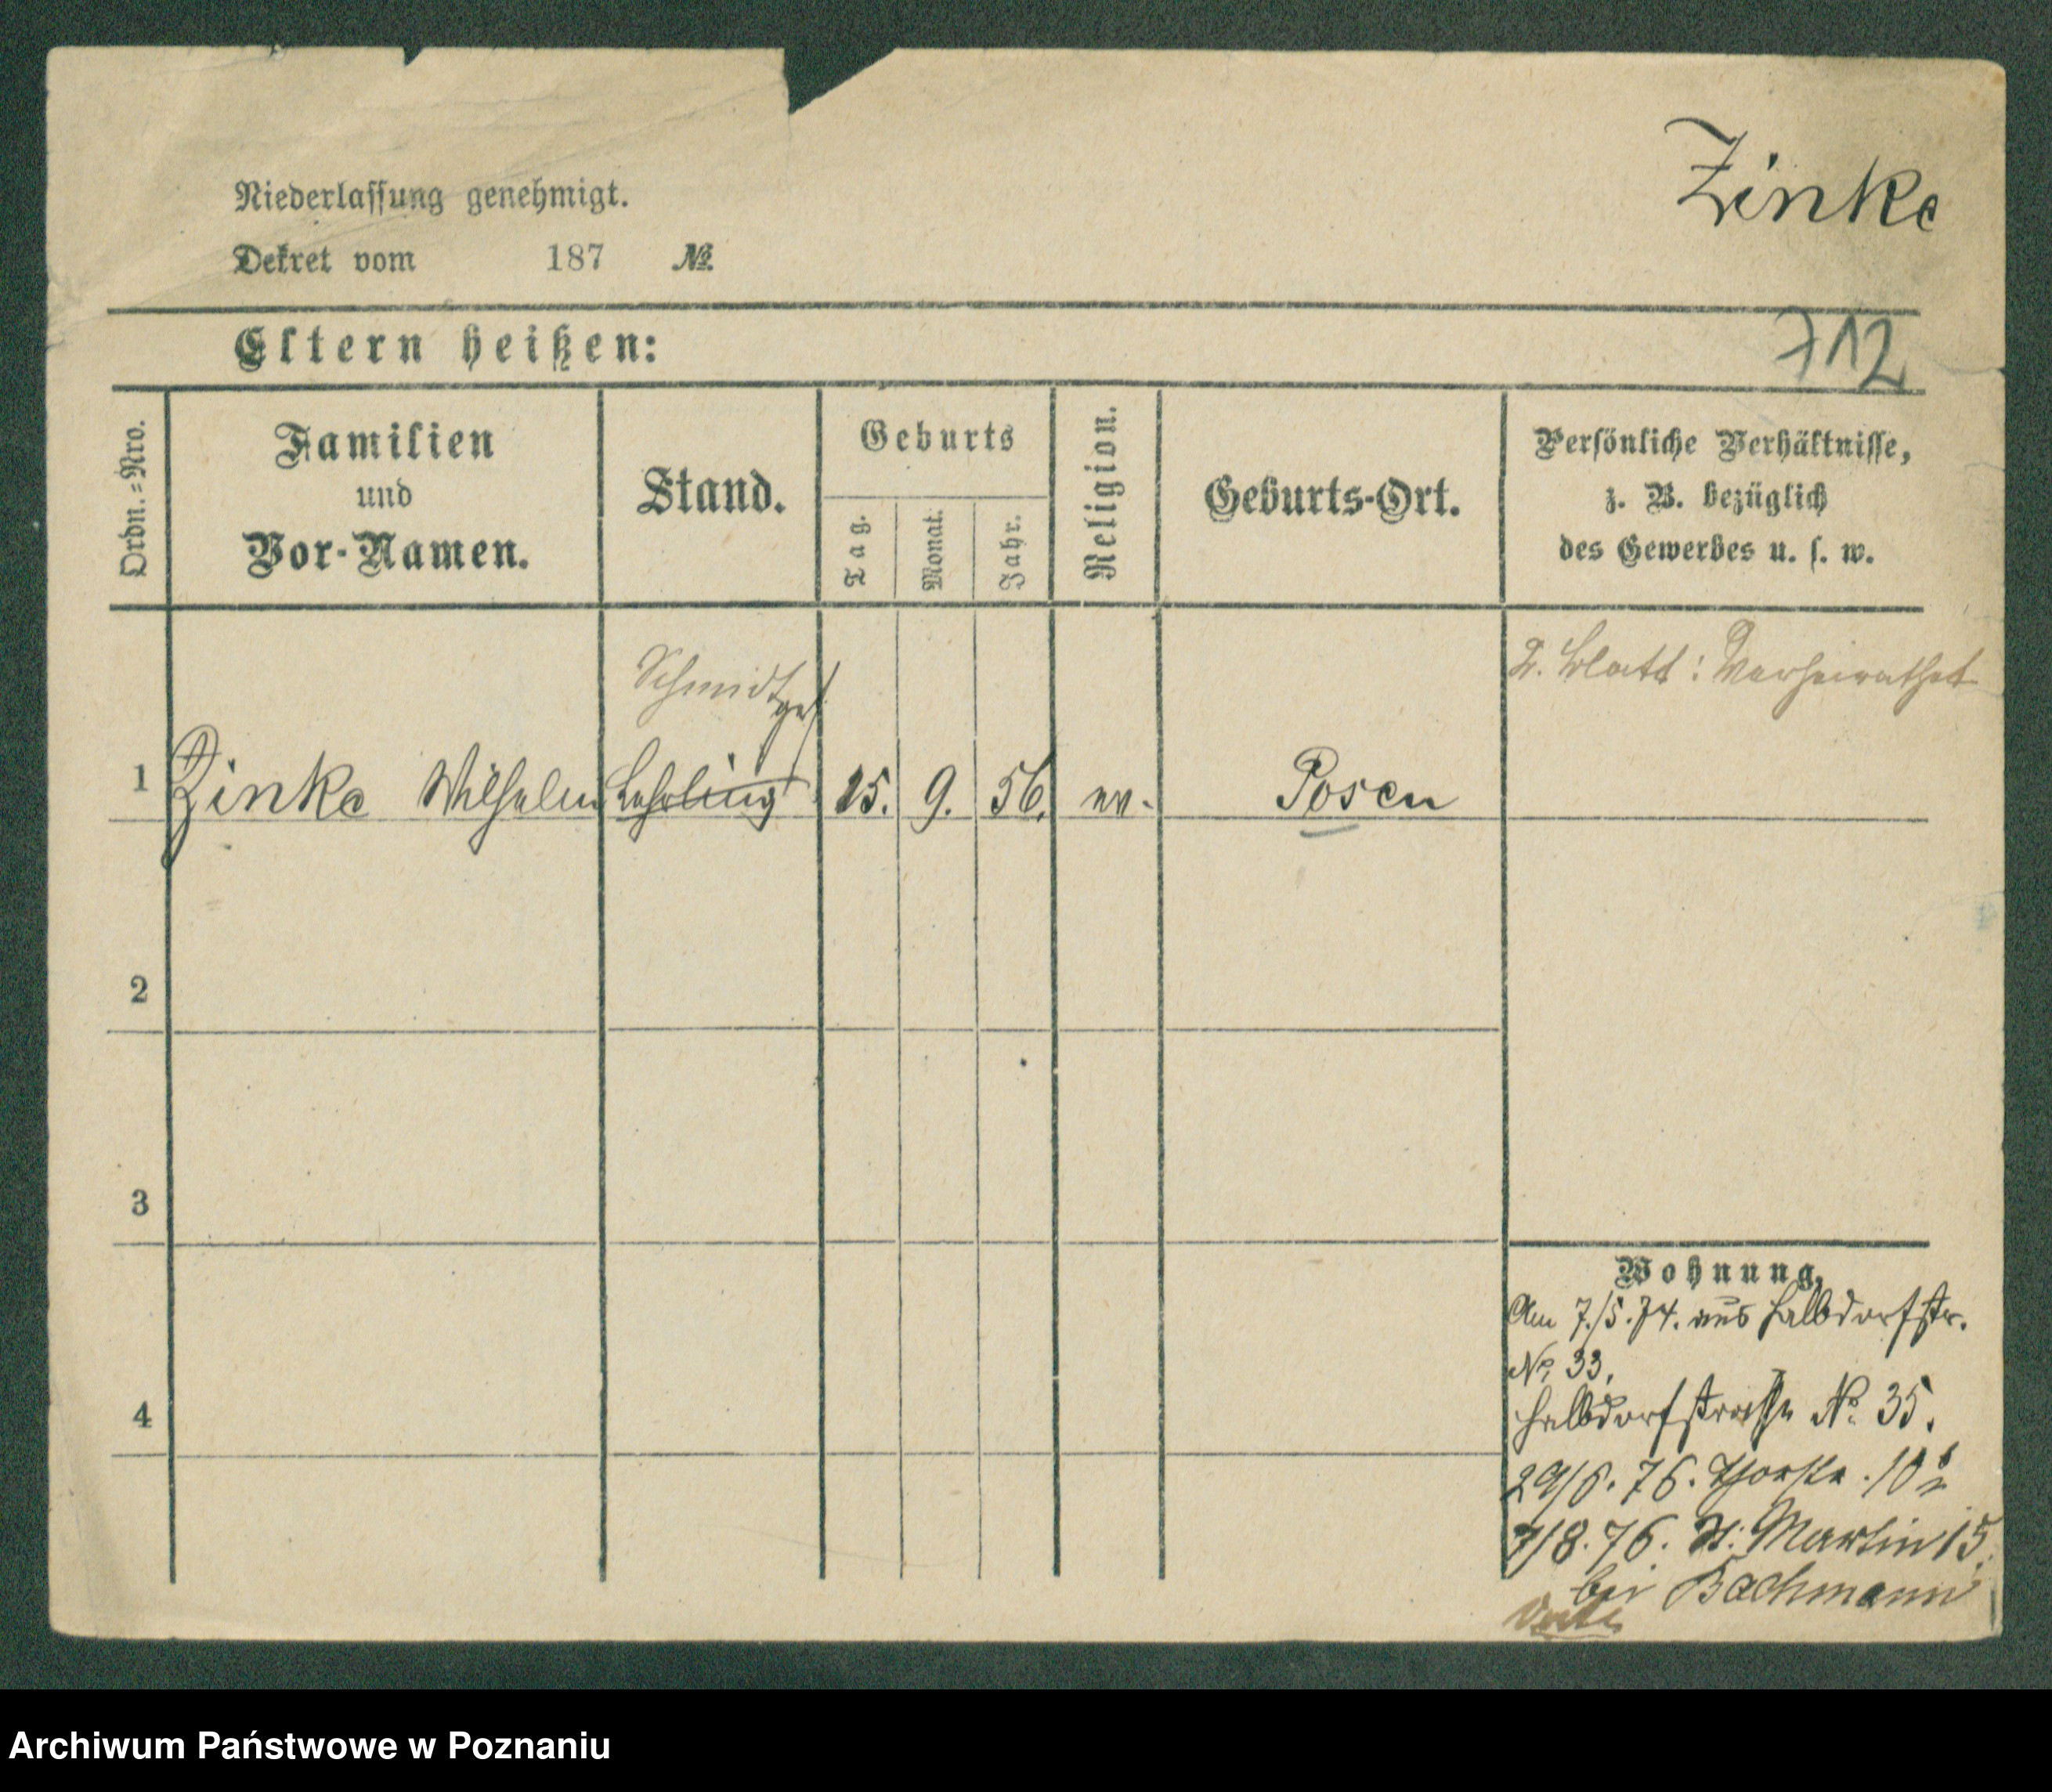 Zinke
Niederlassung genehmigt.
Dekret vom 187 №
Eltern heißen:
712
Ordn.=Nro.
Familien
und
Vor-Namen.
Stand.
Geburts
Tag.
Monat.
Jahr.
Religion.
Geburts-Ort.
Persönliche Verhältnisse,
z. B. bezüglich
des Gewerbes u. s. w.
Schmidtges. 2. Blatt: Verheirathet
1 Zinke Wilhelm Lehrling 25. 9. 56. ev. Posen
2
3
4
Wohnung.
Am 7./5.74. aus Halbdorfstr.
No 33.
Halbdorfstraße No 35.
29/6.76. Thorstr. 10
7/8.76. St. Martin 15.
bei Bachmann
Archiwum Państwowe w Poznaniu